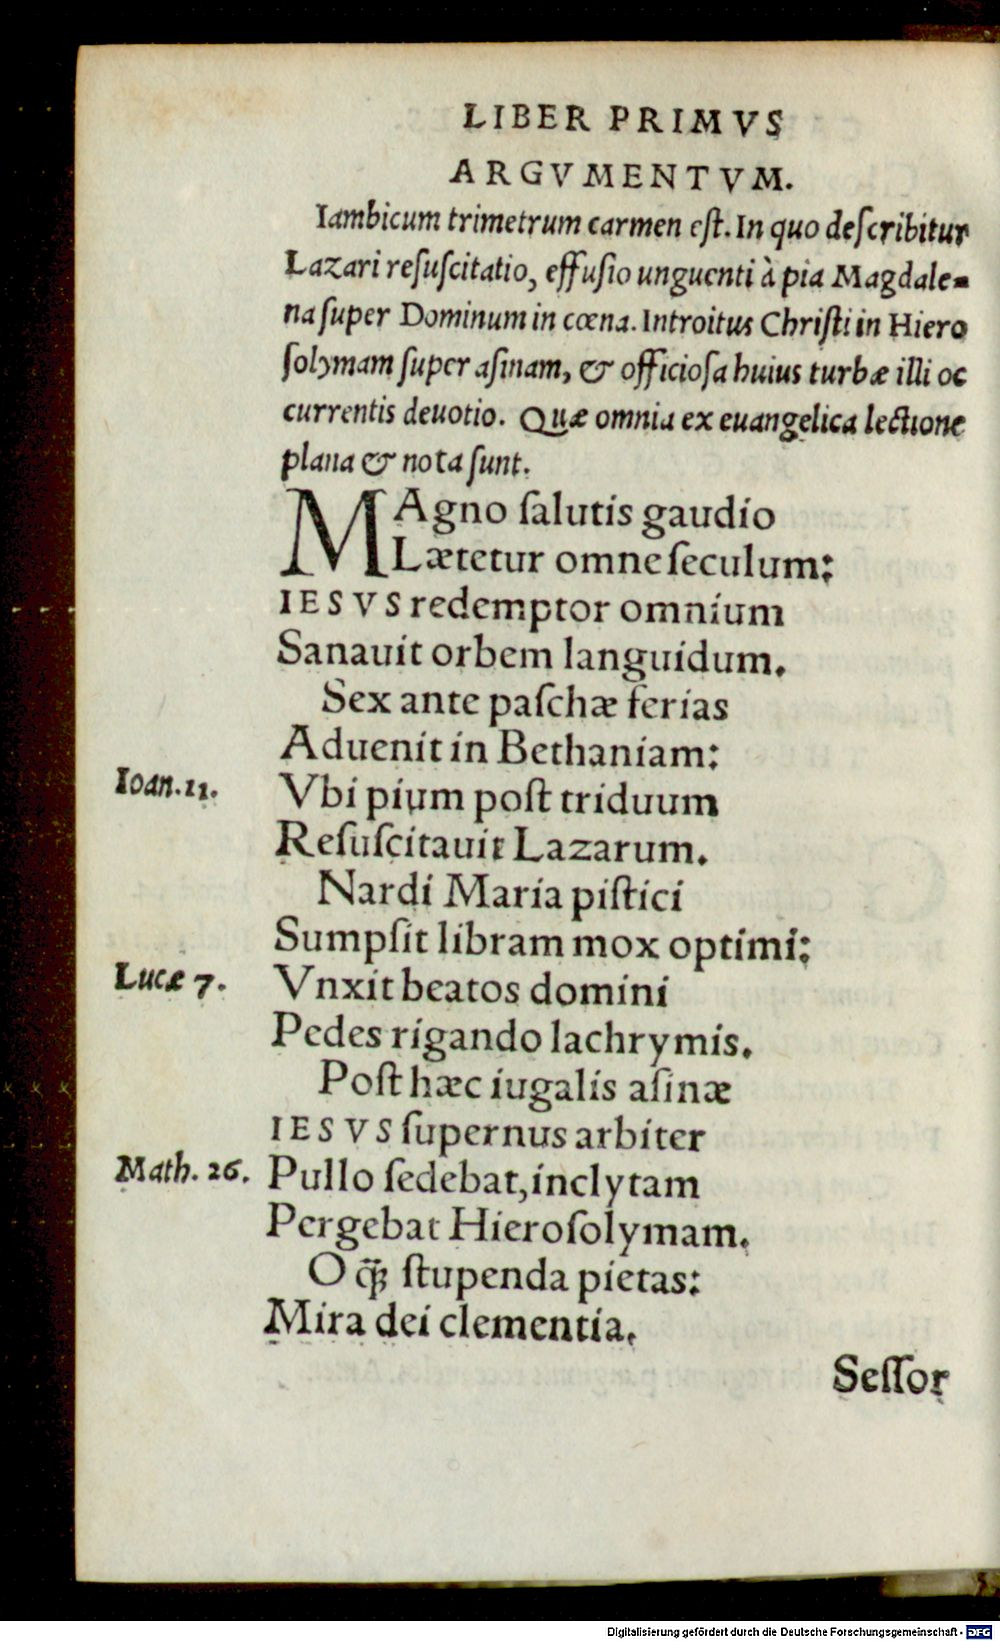 LIBER PRIMVS
ARGVMENTVM.
Iambicum trimetrum carmen eſt. In quo deſcribitur
Lazari reſuſcitatio, effuſio unguenti à pia Magdale-
na ſuper Dominum in cœna. Introitus Chriſti in Hiero
ſolymam ſuper aſinam, & officioſa huius turbæ illi oc
currentis deuotio. Quæ omnia ex euangelica lectione
plana & nota ſunt.
MAgno ſalutis gaudio
Lætetur omne ſeculum:
IESVS redemptor omnium
Sanauit orbem languidum.
Sex ante paſchæ ferias
Aduenit in Bethaniam:
Ioan. 11. Vbi pium poſt triduum
Reſuſcitauit Lazarum.
Nardi Maria piſtici
Sumpſit libram mox optimi:
Lucæ 7. Vnxit beatos domini
Pedes rigando lachrymis.
Poſt hæc iugalis aſinæ
IESVS ſupernus arbiter
Math. 26. Pullo ſedebat, inclytam
Pergebat Hieroſolymam.
O q̃ꝫ ſtupenda pietas:
Mira dei clementia.
Seſſor
Digitalisierung gefördert durch die Deutsche Forschungsgemeinschaft - DFG